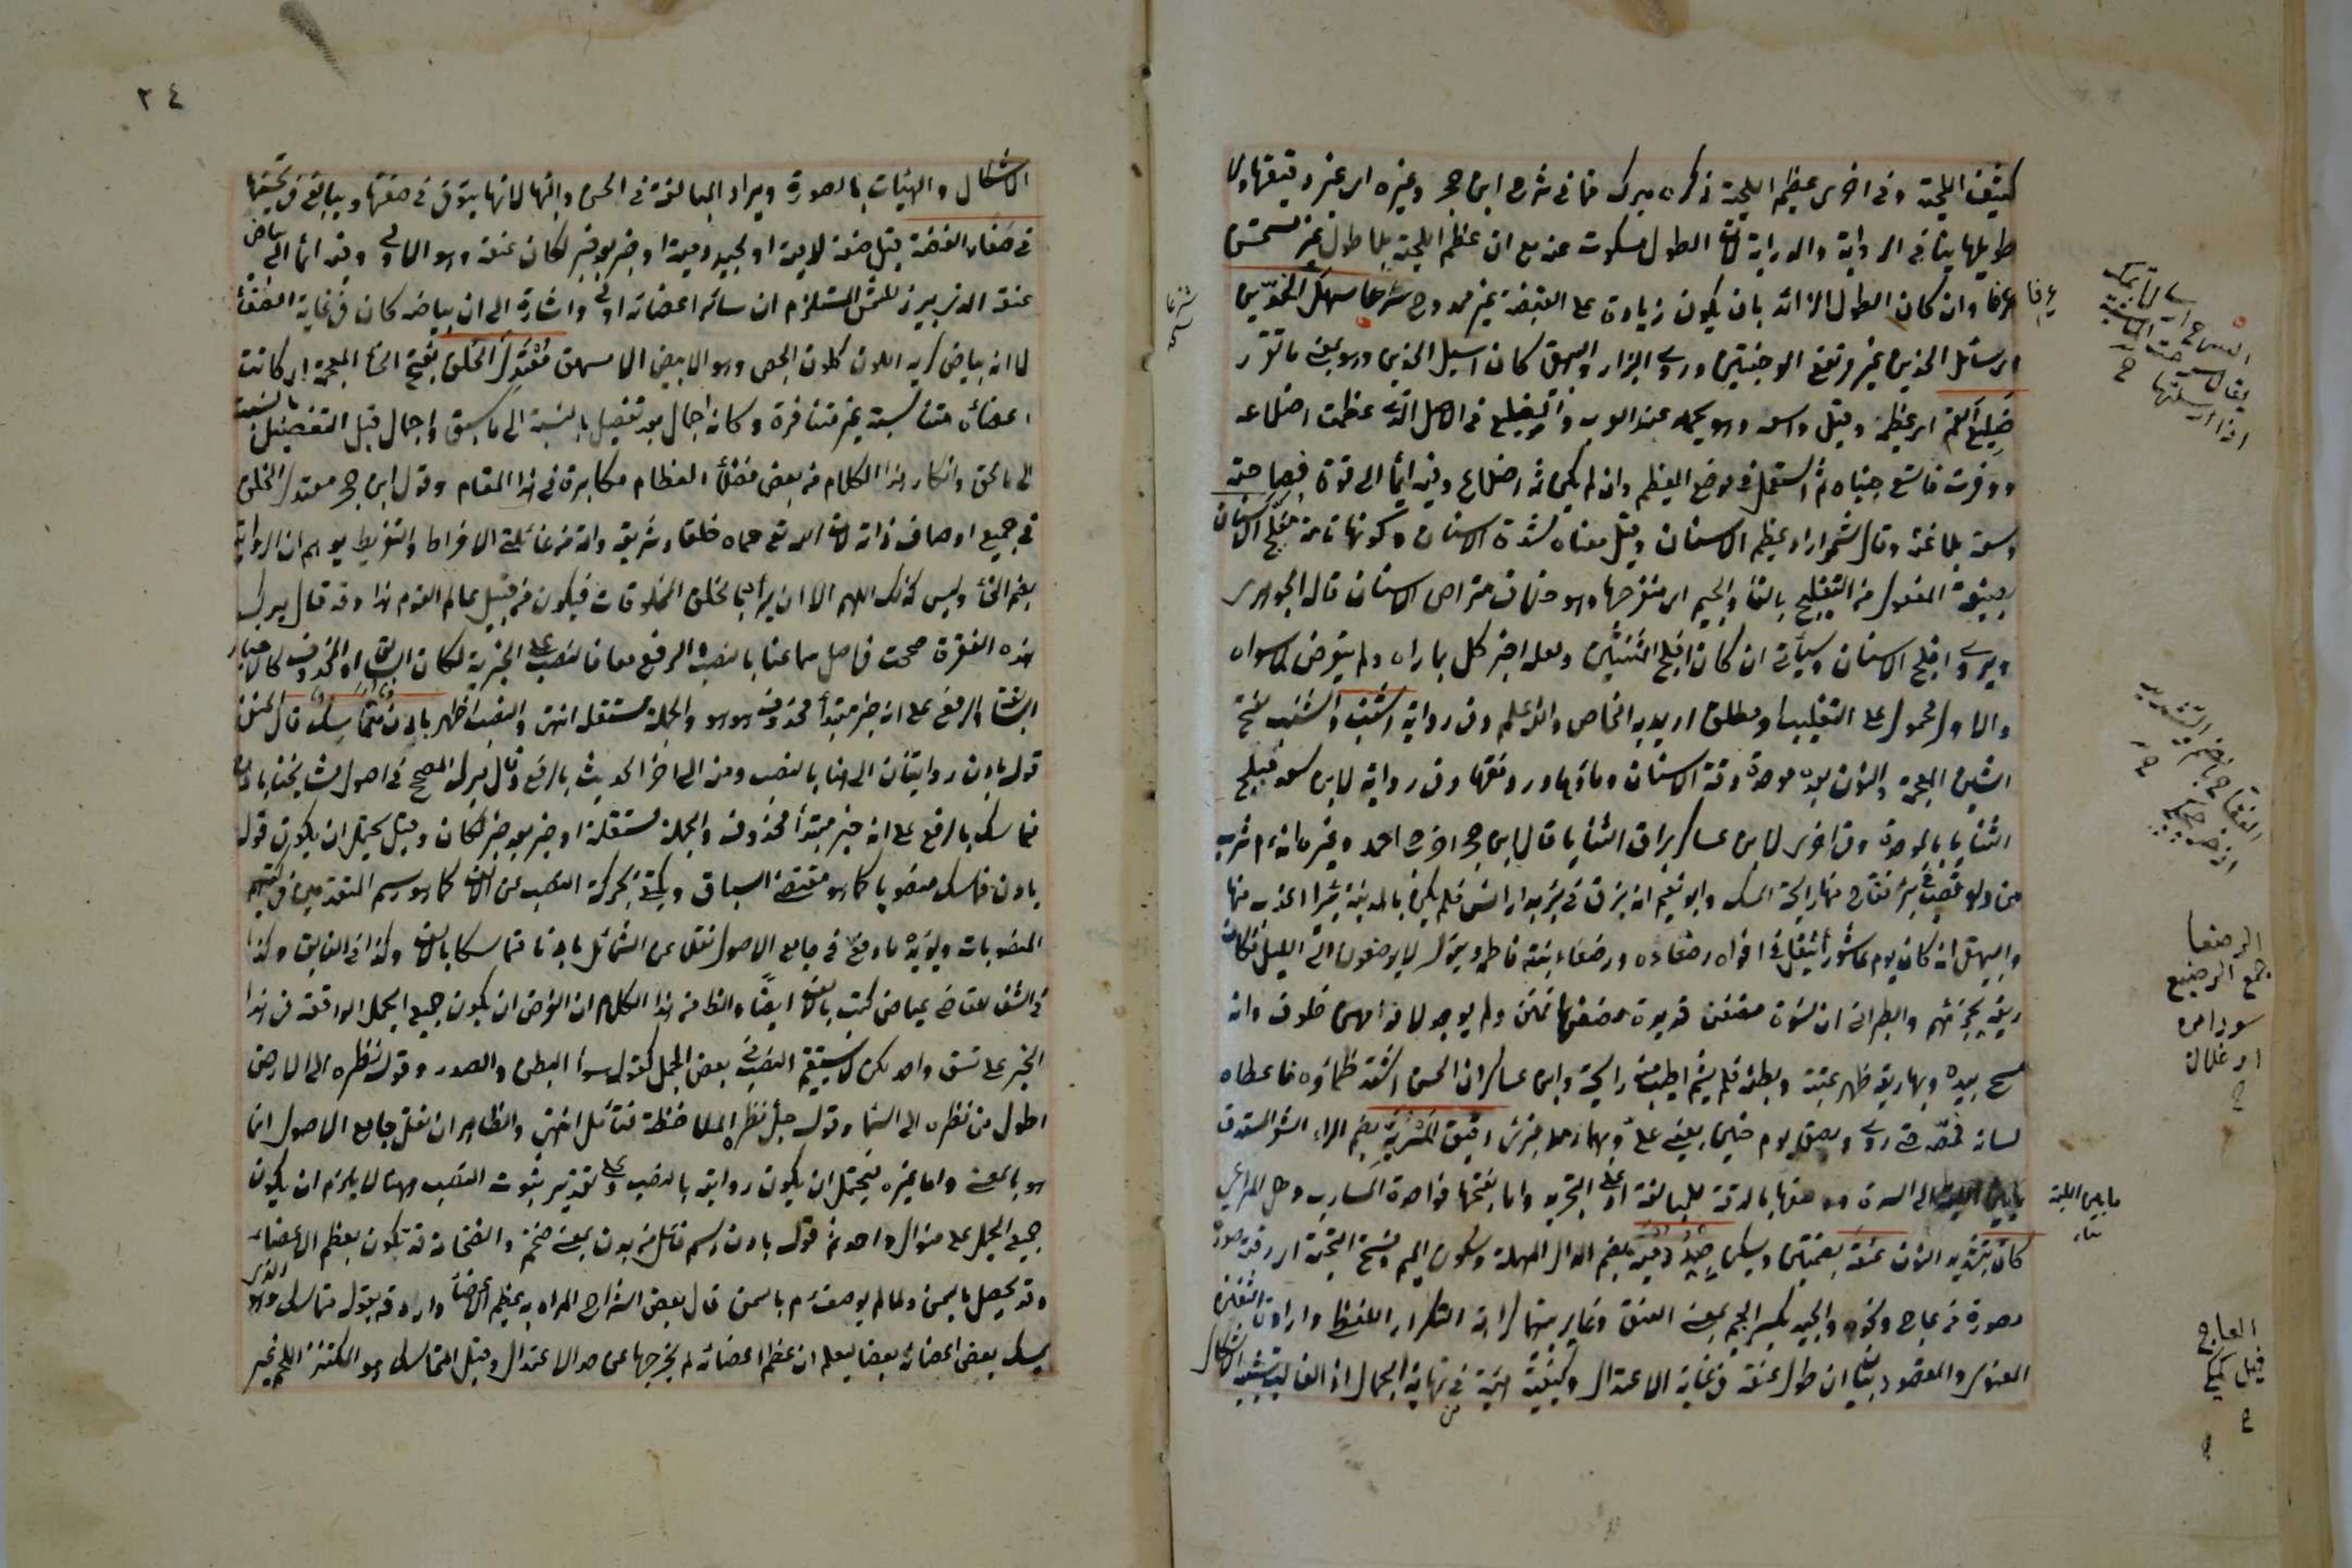 كثيف اللحية وفي اخرى عظيم اللحية ذكره ميرك فما في شرح ابن حجر وغيره اى غير دقيقها ولا
طويلها ينافي الرواية والدراية لان الطول مسكوت عنه مع ان عظم اللحية بلا طول غير مستحسن
عرفا وان كان الطول الزائد بان يكون زيادة على القبضة غير ممدوح شرعا سهل الخدين
اى سائل الخدين غير مرتفع الوجنتين وروى البزار والبيهقي كان اسيل الخدين وهو بمعنى ما تقرر
ضليع الفم اى عظيمه وقيل واسعه وهو يحمد عند العرب والضليع في الاصل الذي عظمت اضلاعه
ووفرت فاتسع جنباه ثم استعمل في موضع العظيم وان لم يكن ثمه اضلاع وفيه ايماء الى قوة فصاحته
وسعة بلاغته وقال شمر اراد عظيم الاسنان وقيل معناه شدة الاسنان وكونها تامة مفلج الاسنان
بصيغة المفعول من التفليج بالفاء والجيم اى منفرجها وهو خلاف متراص الاسنان قاله الجوهرى
ويروى افلج الاسنان وسيأتي انه كان افلج الثنيتين ولعله اخبر كل بما راه ولم يتعرض لما سواه
والاول محمول على التغليب او مطلق اريد به الخاص والله اعلم وفي رواية اشنب والشنب بفتح
الشين المعجمة والنون بعده موحدة رقة الاسنان وماؤها ورونقها وفي رواية لابن سعد مبلج
الثنايا بالموحدة وفي اخرى لابن عساكر براق الثنايا قال ابن حجر اخرج احمد وغيره انه عم شرب
من دلو فصب في بئر ففاح منها رائحة المسك وابو نعيم انه بزق في بئر بدار انس فلم يكن بالمدينة بئر اعذب منها
والبيهقي انه كان يوم عاشوراء يتفل في افواه رضعائه ورضعاء بنته فاطمة ويقول لا يرضعون الى الليل فكان
ريقه يجزئهم والطبراني ان نسوة مضغن قديدة مضغها فمتن ولم يوجد لافواههن خلوف وانه
مسح بيده وبها ريقه ظهر عتبة وبطنه فلم يشم اطيب منه رائحة وابن عساكر ان الحسن اشتد ظمأوه فاعطاه
لسانه فمصه حتى روى وبصق يوم خيبر بعيني علي وبهما رمد فبرئ دقيق المسربة بضم الراء الشعر المستدق
ما بين اللبة الى السرة ووصفها بالدقة للمبالغة او على التجريد واما بفتحها فواحدة المسارب وهي المراعي
كأن بتشديد النون عنقه بضمتين ويسكن جيد دمية بضم الدال المهملة وسكون الميم وفتح التحتية اى رقبة صورة
مصورة من عاج ونحوه والجيد بكسر الجيم بمعنى العنق وغاير بينهما كراهة التكرار اللفظى وارادة التفنن
المعنوى والمقصود بيان ان طول عنقه في غاية الاعتدال وكيفية هيئته في نهاية الجمال اذ الغالب تشبيه الاشكال
عرفا
السهل اى السائل
شرعا
الرضعا
جمع الرضيع
ما بين اللبة
العاج
٢٤
الاشكال والهيئات بالصورة ويراد المبالغة في الحسن والبهاء لانها يتوق في صنعتها ويبالغ في تحسينها
في صفاء الفضة قيل صفة لدمية او لجيد دمية او خبر بعد خبر لكان عنقه وهو الاولى وفيه ايماء الى بياض
عنقه الذى يبرز للشمس المستلزم ان سائر اعضائه اولى واشارة الى ان بياضه كان في غاية الصفاء
لا انه بياض كريه اللون كلون الجص وهو الابيض الامهق معتدل الخلق بفتح الخاء المعجمة اى كانت
اعضائه متناسبة غير متنافرة وكأنه اجمال بعد تفصيل بالنسبة الى ما سبق واجمال قبل التفصيل بالنسبة
الى ما لحق وانكار هذا الكلام من بعض فضلاء العظام مكابرة في هذا المقام وقول ابن حجر معتدل الخلق
في جميع اوصاف ذاته لان الله تعالى حماه خلقا وشريعة وامة من غائلتي الافراط والتفريط يوهم ان الرواية
بضم الخاء وليس كذلك اللهم الا ان يراد بالخلق المخلوقات فيكون من قبيل عالم القوم هذا وقد قال ميرك
هذه الفقرة صححت في اصل سماعنا بالنصب والرفع معا فالنصب على الخبرية لكان السابق او المحذوف كالاخبار
السابقة والرفع على انه خبر مبتدأ محذوف هو هو والجملة مستقلة انتهى والنصب اظهر بادن متماسك قال الحنفي
قوله بادن روايتان الى هنا بالنصب ومنه الى اخر الحديث بالرفع وقال ميرك المصحح في اصول مشايخنا بادن
متماسك بالرفع على انه خبر مبتدأ محذوف والجملة مستقلة او خبر بعد خبر لكان وقيل يحتمل ان يكون قوله
بادن متماسك منصوبا كما هو مقتضى السياق ويكتفي بحركة النصب عن الالف كما هو رسم المتقدمين في كتبهم
المنصوبات ويؤيده ما وقع في جامع الاصول نقلا عن الشمائل بادنا متماسكا بالالف وكذا في الفايق وكذا
في الشفا للقاضي عياض كتب بالالف ايضا والظاهر من هذا الكلام ان الغرض ان يكون جميع الجمل الواقعة في هذا
الخبر على نسق واحد لكن لا يستقيم النصب في بعض الجمل كقوله سواء البطن والصدر وقوله نظره الى الارض
اطول من نظره الى السماء وقوله جل نظره الملاحظة فتأمل انتهى والظاهر ان نقل جامع الاصول انما
هو بالمعنى واما غيره فيحتمل ان يكون رواية بالنصب وعلى تقدير ثبوت النصب ههنا لا يلزم ان يكون
جميع الجمل على منوال واحد ثم قوله بادن اسم فاعل من بدن بمعنى ضخم والضخامة قد تكون بعظم الاعضاء
وقد يحصل بالسمن ولما لم يوصف عم بالسمن قال بعض الشراح المراد به عظيم الاعضاء واردفه بقوله متماسك وهو الذى
يمسك بعض اعضائه بعضا ليعلم ان عظم اعضائه لم يخرجها عن حد الاعتدال وقيل المتماسك هو المكتنز اللحم غير